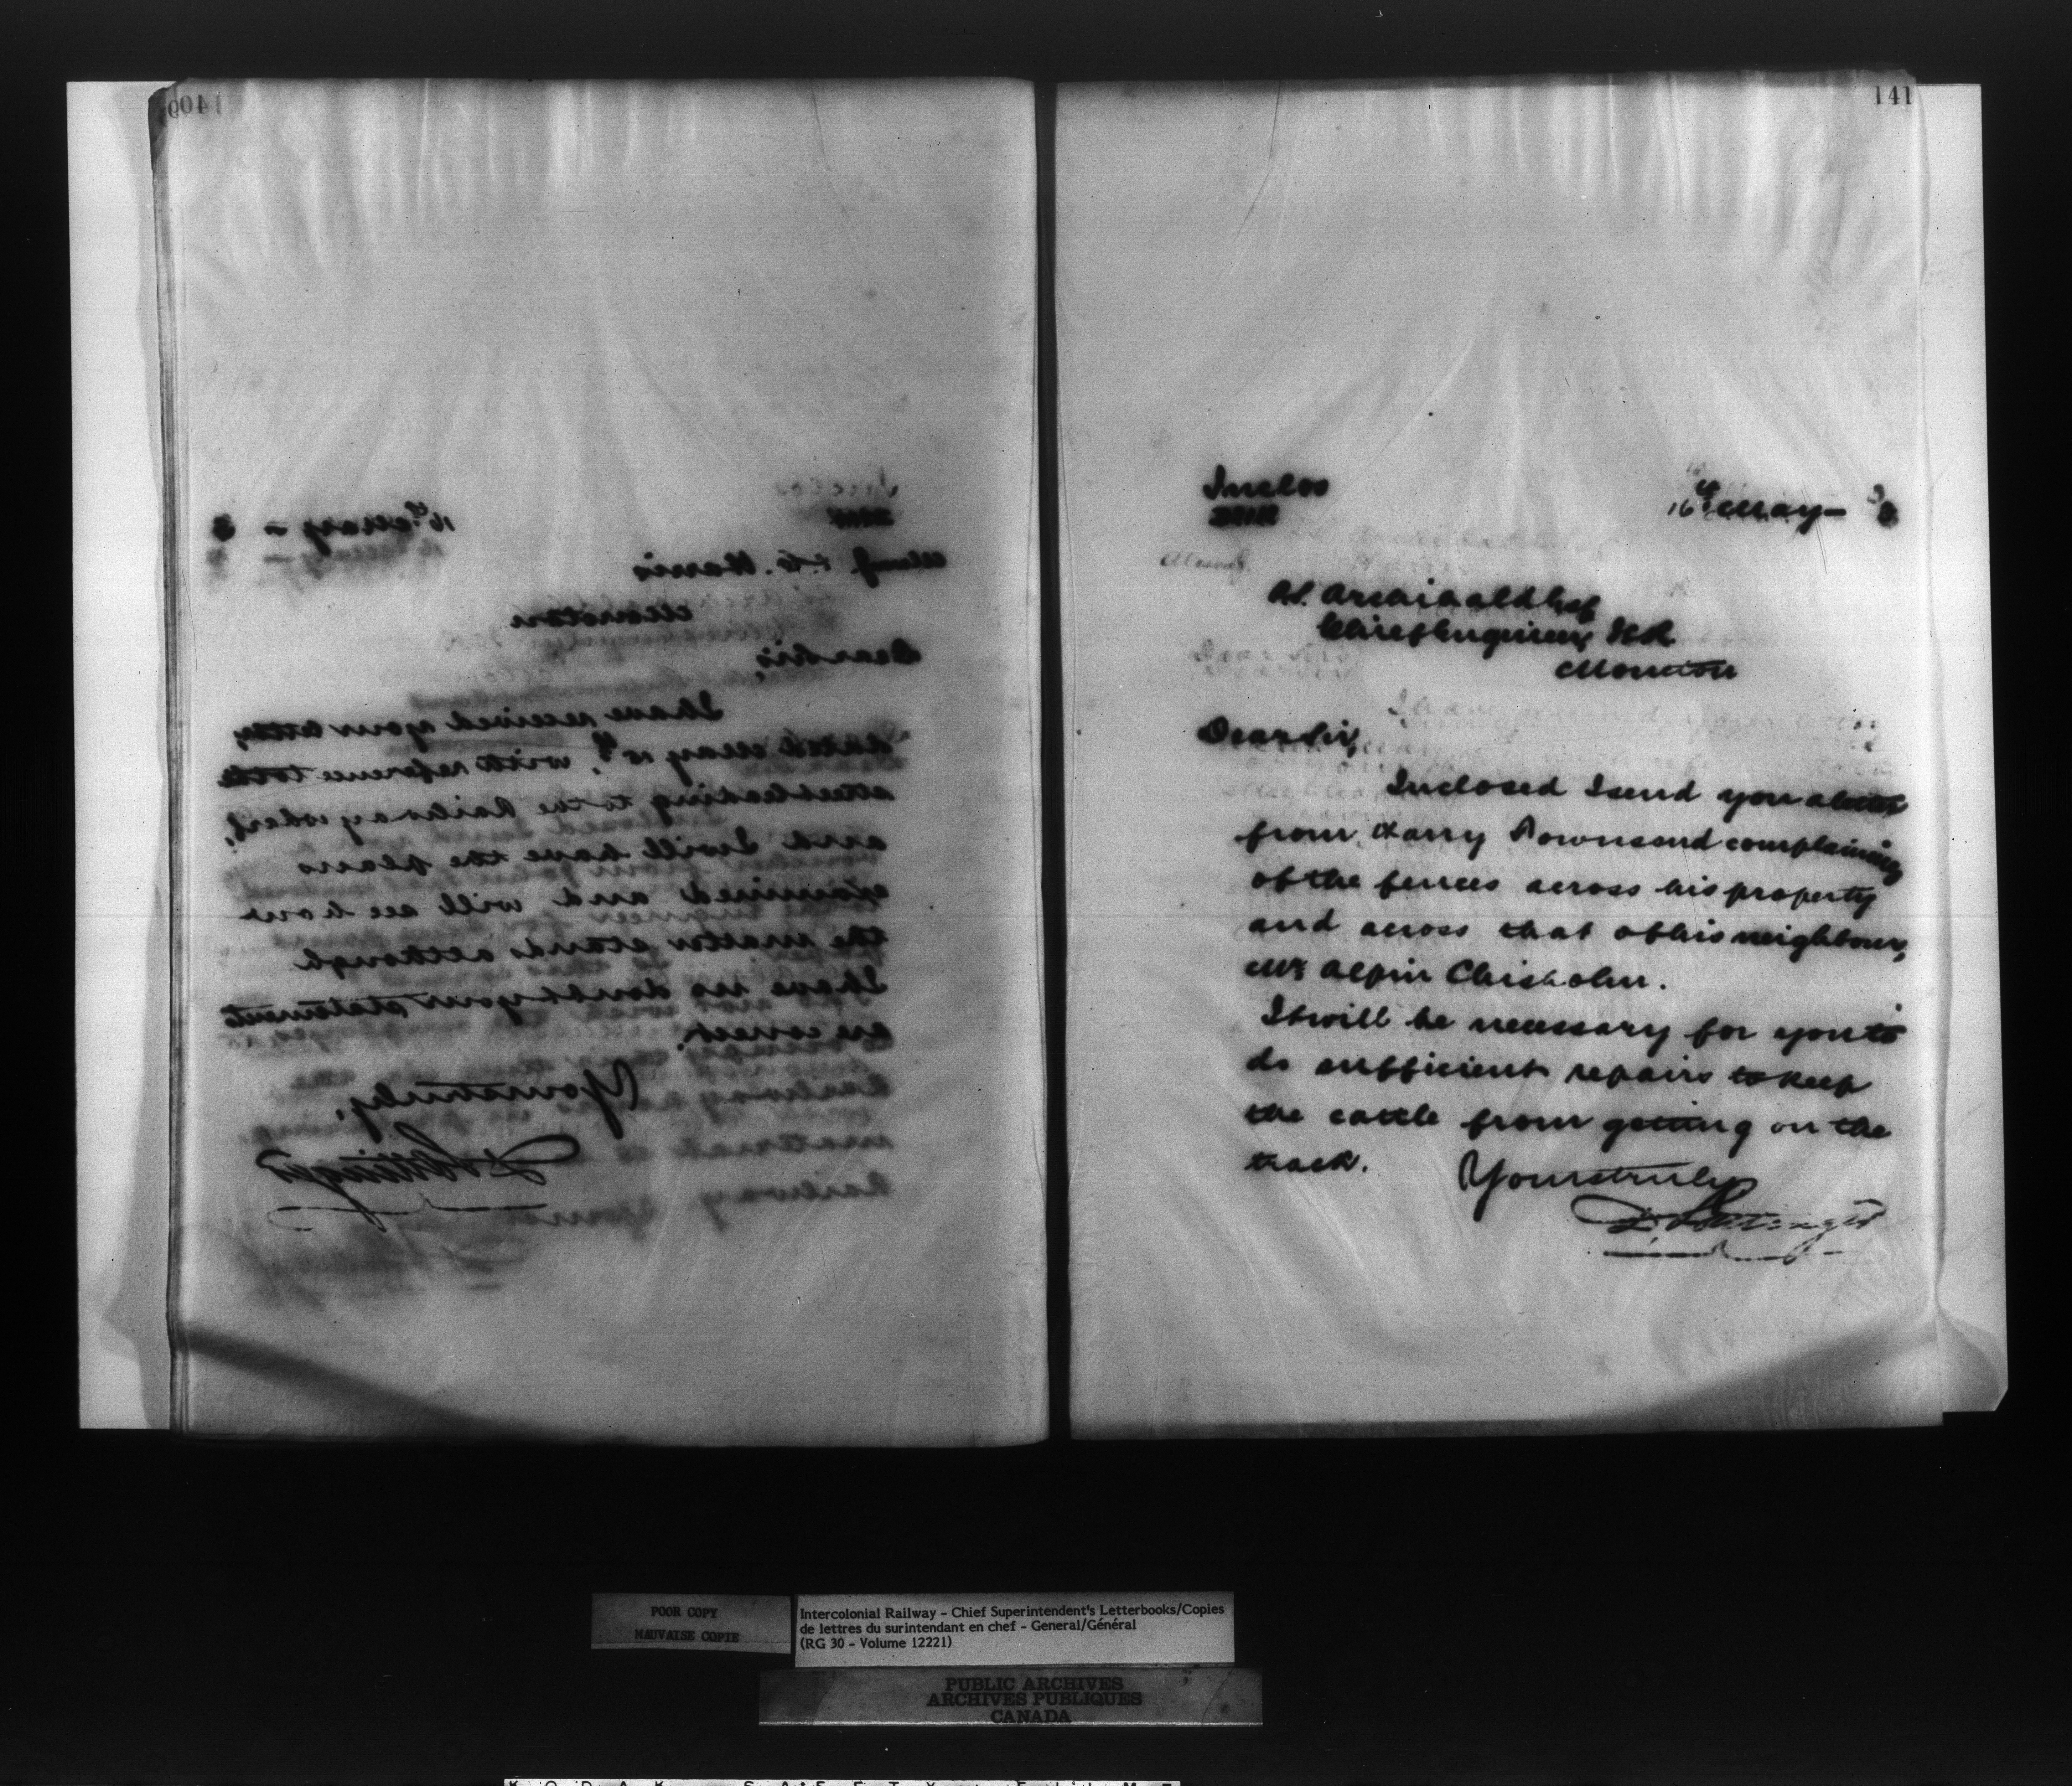 1409
16th May - 3
Messrs. Harris
Moncton
Dear Sir,
I have received your letter,
dated May 15th, with reference to the
street leading to the Railway wharf,
and I will have the plans
examined and will see how
the matter stands although
I have no doubt your statements
are correct.
Yours truly,
D Pottinger
141
Inclos
16th May - 3
P.S. Archibald Esq
Chief Engineer, ICR
Moncton
Dear Sir,
Inclosed I send you a letter
from Harry Townsend complaining
of the fences across his property
and across that of his neighbour,
Mr Alpin Chisholm.
It will be necessary for you to
do sufficient repairs to keep
the cattle from getting on the
track.
Yours truly
D Pottinger
POOR COPY
MAUVAISE COPIE
Intercolonial Railway - Chief Superintendent's Letterbooks/Copies
de lettres du surintendant en chef - General/Général
(RG 30 - Volume 12221)
PUBLIC ARCHIVES
ARCHIVES PUBLIQUES
CANADA